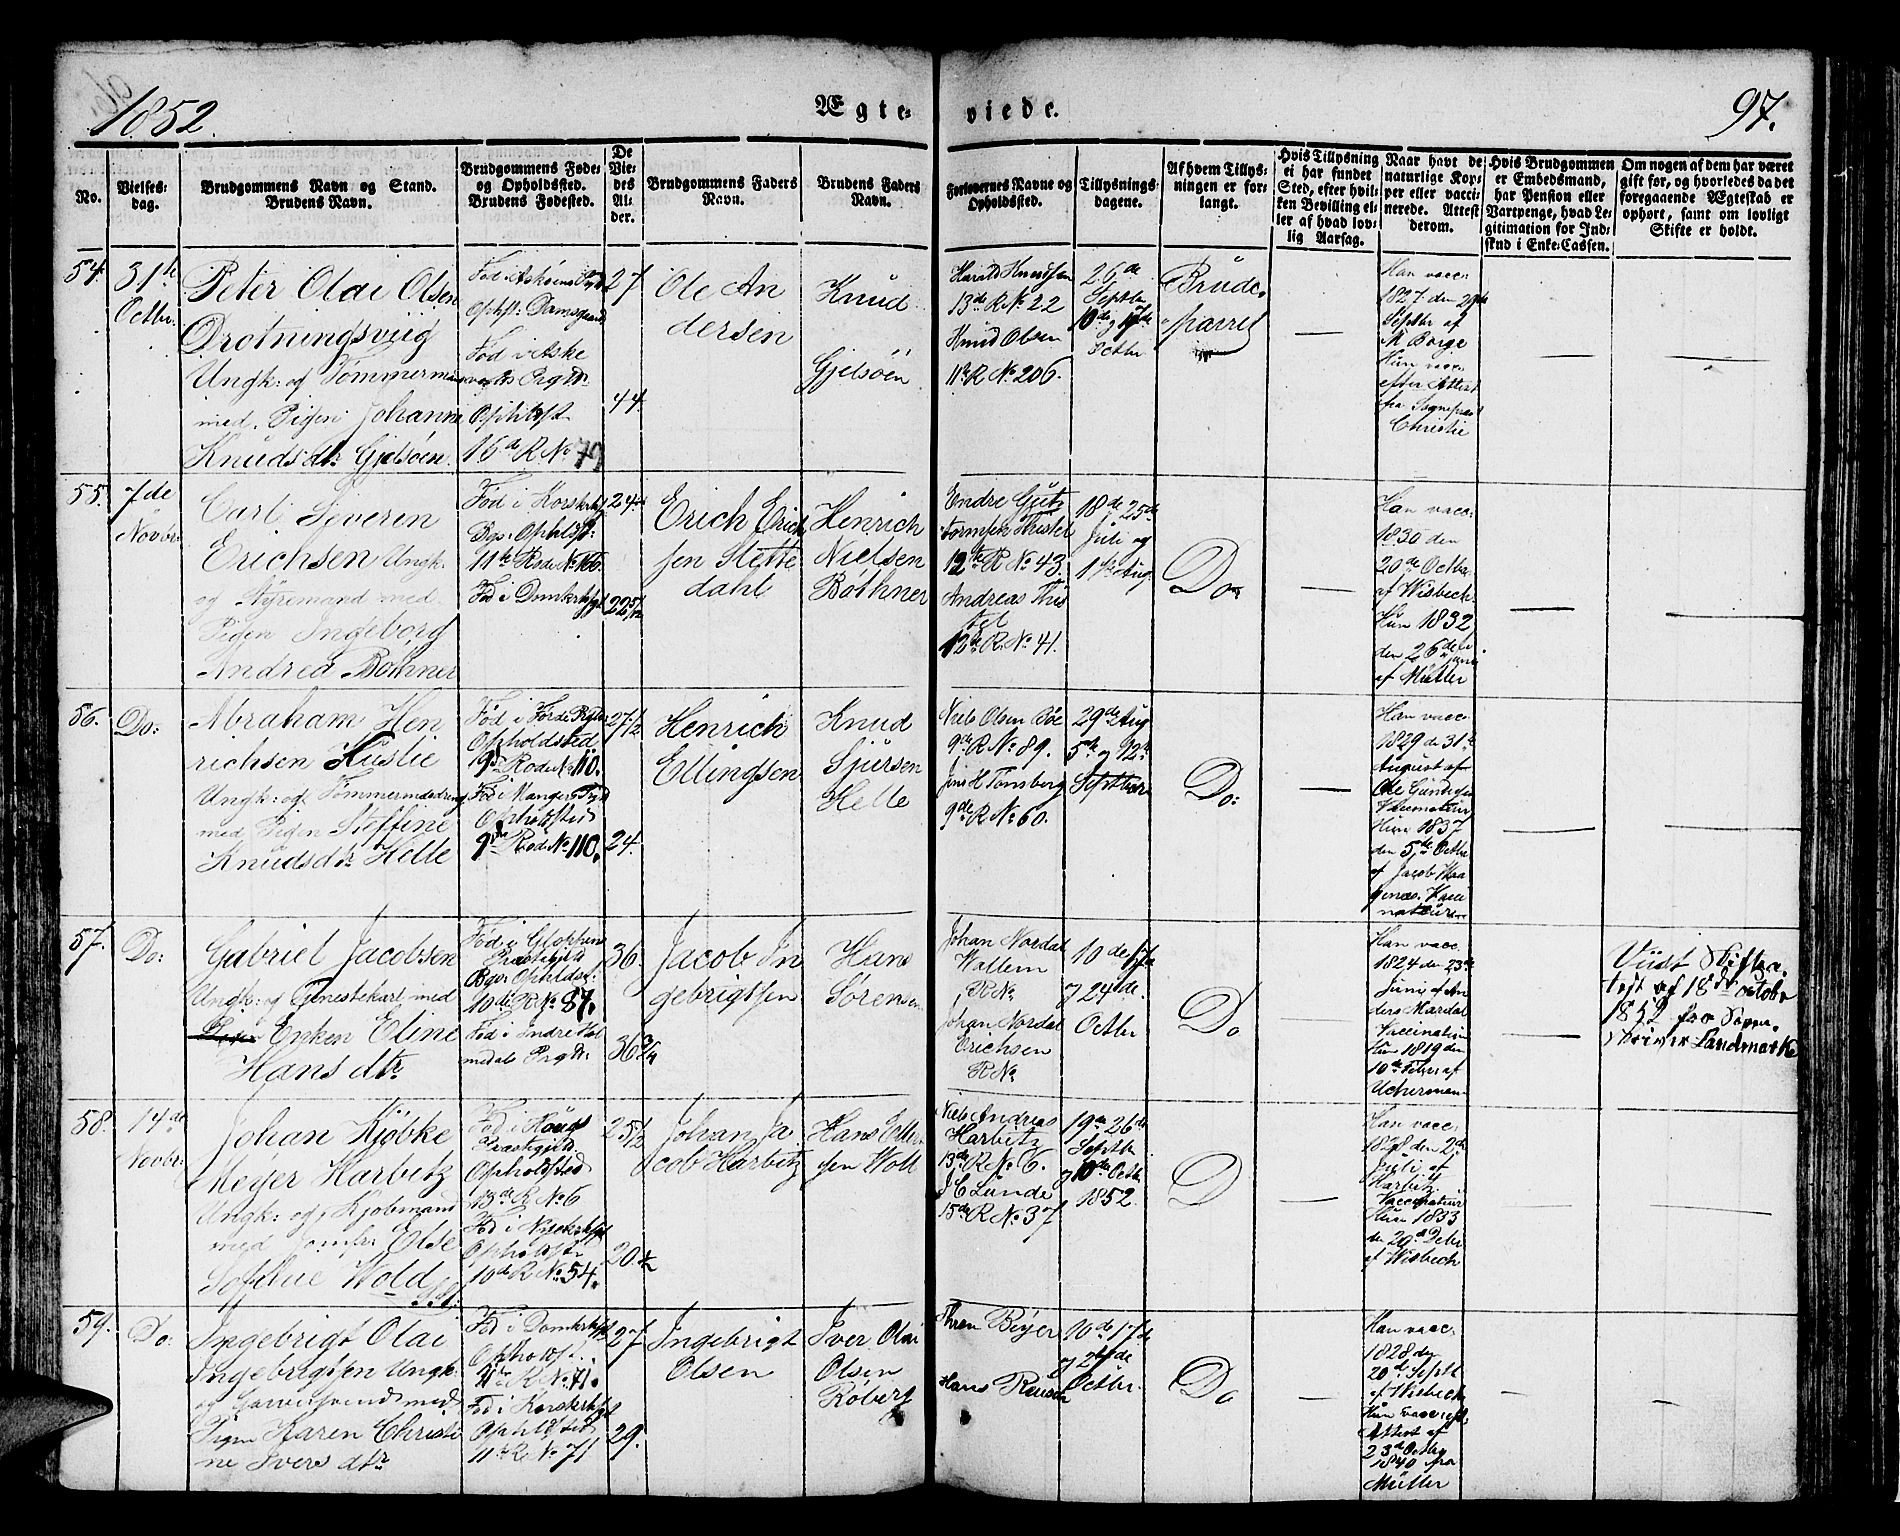 1852.
Ægte-
viede.
97.
No.
Vielses-
dag.
Brudgommens Navn og Stand.
Brudens Navn.
Brudgommens Føde-
og Opholdssted.
Brudens Fødested.
De
Vie-
des
Al-
der.
Brudgommens Faders
Navn.
Brudens Faders
Navn.
Forlovernes Navne og
Opholdssted.
Tillysnings-
dagene.
Af hvem Tillys-
ningen er for-
langt.
Hvis Tillysning
ei har fundet
Sted, efter hvil-
ken Bevilling el-
ler af hvad lov-
lig Aarsag.
Naar havt de
naturlige Kop-
per eller vacci-
nerede. Attest
derom.
Hvis Brudgommen
er Embedsmand,
har Pension eller
Vartpenge, hvad Le-
gitimation for Ind-
skud i Enke-Cassen.
Om nogen af dem har været
gift før, og hvorledes da det
foregaaende Ægteskab er
ophørt, samt om lovligt
Skifte er holdt.
54.
31te
Octbr.
Peter Olai Olsen
Drotningsviig
Ungk: og Tømmermand
med Pigen Johanne
Knudsdtr Gjelsöen
Fød i Askøens Pgd
Ophst: Damsgaard
Fød i Aske
volds Prgd:
Ophldst
16de R No 79
27
44
Ole An
dersen
Knud
Gjelsöen
Harald Knudsen
13de R No 22
Knud Olsen
11te R No 206.
26de
Septbr
10de og 17de
Octbr
Brude-
parret
Han vacc.
1827 den 29de
Septbr af
M Borge
Hun vacc.
efter Attest
fra Sognepræst
Christie
55.
7de
Novbr
Carl Severin
Erichsen Ungk.
og Styremand med
Pigen Ingeborg
Andrea Bøthner
Fød i Korskirk
Bgs: Ophldst:
11te Rode No 166.
Fød i Domkrksgt
24
22 5/12
Erich Erich
sen Stette
dahl
Henrich
Nielsen
Bøthner
Endre
12te R No 43.
Andreas This
tel
12te R No 41.
18de 25de
Juli og
1ste Aug.
Do
Han vacc.
1830 den
20de Octbr
af Wisbech
Hun 1832
den 26de
Juni
af Müller
56.
Do:
Abraham Hen
richsen Huslie
Ungk: og Tømmermdsdreng
med Pigen Steffine
Knudsdtr Helle
Fød i Førde Prgd
Opholdsted
9de Rode No 110.
Fød i Manger Pgd
Opholdsted
9de Rode No 110.
27 1/2
24.
Henrich
Ellingsen
Knud
Sjursen
Helle
Niels Olsen Böe
9de R No 89.
Jens H Tønsberg
9de R No 60.
29de Aug
5te og 12te
Septbr
Do:
Han vacc.
1829 den 31te
August af
Ole Gundersen
Vaccinateur
Hun 1837
den 5te Octbr
af Jacob Waa
genes. Vacci
nateur
57.
Do:
Gabriel Jacobsen
Ungk: og Tjenestekarl med
Enken Eline
Hansdtr.
Fød i Gloppens
Præstegjeld
Bgs: Opholdst:
10de R No 87.
Fød i Indre Hol
medals Prgd:
36.
36 3/4
Jacob In
gebrigtsen
Hans
Sörensen
Johan Nordal
Wollem
R No
Johan Nordal
Erichsen
R No
10de 17de
og 24de
Octbr
Do
Han vacc.
1824 den 23de
Juni af An
ders Mardal
Vaccinatur
Hun 1819 den
10de Febr af
Uchermann
Viist Skifteat-
test af 18de october
1852 fra Soren-
skriver Landmark
58.
14de
Novbr:
Johan Kjøbke
Meyer Harbitz
Ungk: og Kjøbmand
med Jomfr Else
Sophie Wold
Fød i Hougs
Præstegjeld
Opholdsted
13de R No 6
Fød i Nykrksgt
Opholdst
10de R No 54.
25 1/2
20 1/2
Johan Ja
cob Harbitz
Hans Eller
sen Wolt
Niels Andreas
Harbitz
13de R No 6.
J C Lunde
15de R No 37
19de 26de
Septbr
og 10de Octbr
1852.
D
Han vacc.
1828 den 2de
Juli af
Harbitz
Vaccinatur
Hun 1833
den 29de Octbr
af Wisbech
59.
Do:
Ingebrigt Olai
Ingebrigtsen Ungk.
og Garversvend med
Pigen Karen Christi
ne Iversdtr
Fød i Domkrksgt
Opholdst.
11te R No 71.
Fød i Korskrksgt
Opholdsted
11te R No 71
27
29.
Ingebrigt
Olsen
Iver Olai
Olsen
Røberg
Thren Beyer
Hans Reusch
10de 17de
og 24de
Octbr.
Do
Han vacc.
1828 den
20de Septb
af Wisbech
Hun vacc. eft.
Attest af
23de Octbr
1840 fra
Müller